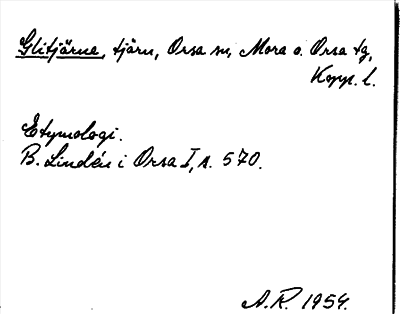 Glitjärne, tjärn, Orsa sn, Mora o. Orsa tg,
Kopp. l.
Etymologi.
B. Lindén i Orsa I, s. 570.
A.R. 1954.